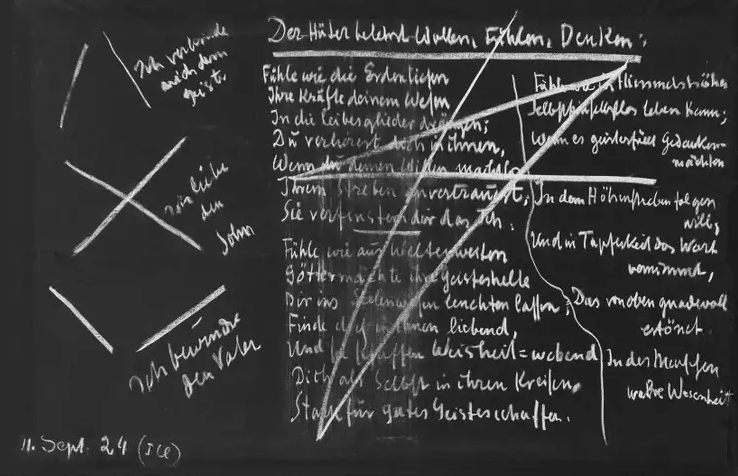 Ich verbinde
mich dem
Geiste
Ich liebe
den
Sohn
Ich bewundre
den Vater
11. Sept. 24 (ICL)
Der Hüter belehrt Wollen, Fühlen, Denken:
Fühle wie die Erdentiefen
Ihre Kräfte deinem Wesen
In die Leibesglieder drängen;
Du verlierest dich in ihnen,
Wenn du deinen Willen machtlos
Ihrem Streben anvertrauest;
Sie verfinstern dir das Ich.
Fühle wie aus Weltenweiten
Göttermächte ihre Geisteshelle
Dir ins Seelenwesen leuchten lassen;
Finde dich in ihnen liebend,
Und sie schaffen Weisheit=webend
Dich als Selbst in ihren Kreisen,
Stark für gutes Geistesschaffen.
Fühle wie in Himmelshöhen
Selbstsein selbstlos leben kann;
Wenn es geisterfüllt Gedanken-
mächten
In dem Höhenstreben folgen
will,
Und in Tapferkeit das Wort
vernimmt,
Das von oben gnadevoll
ertönet
In des Menschen
wahre Wesenheit